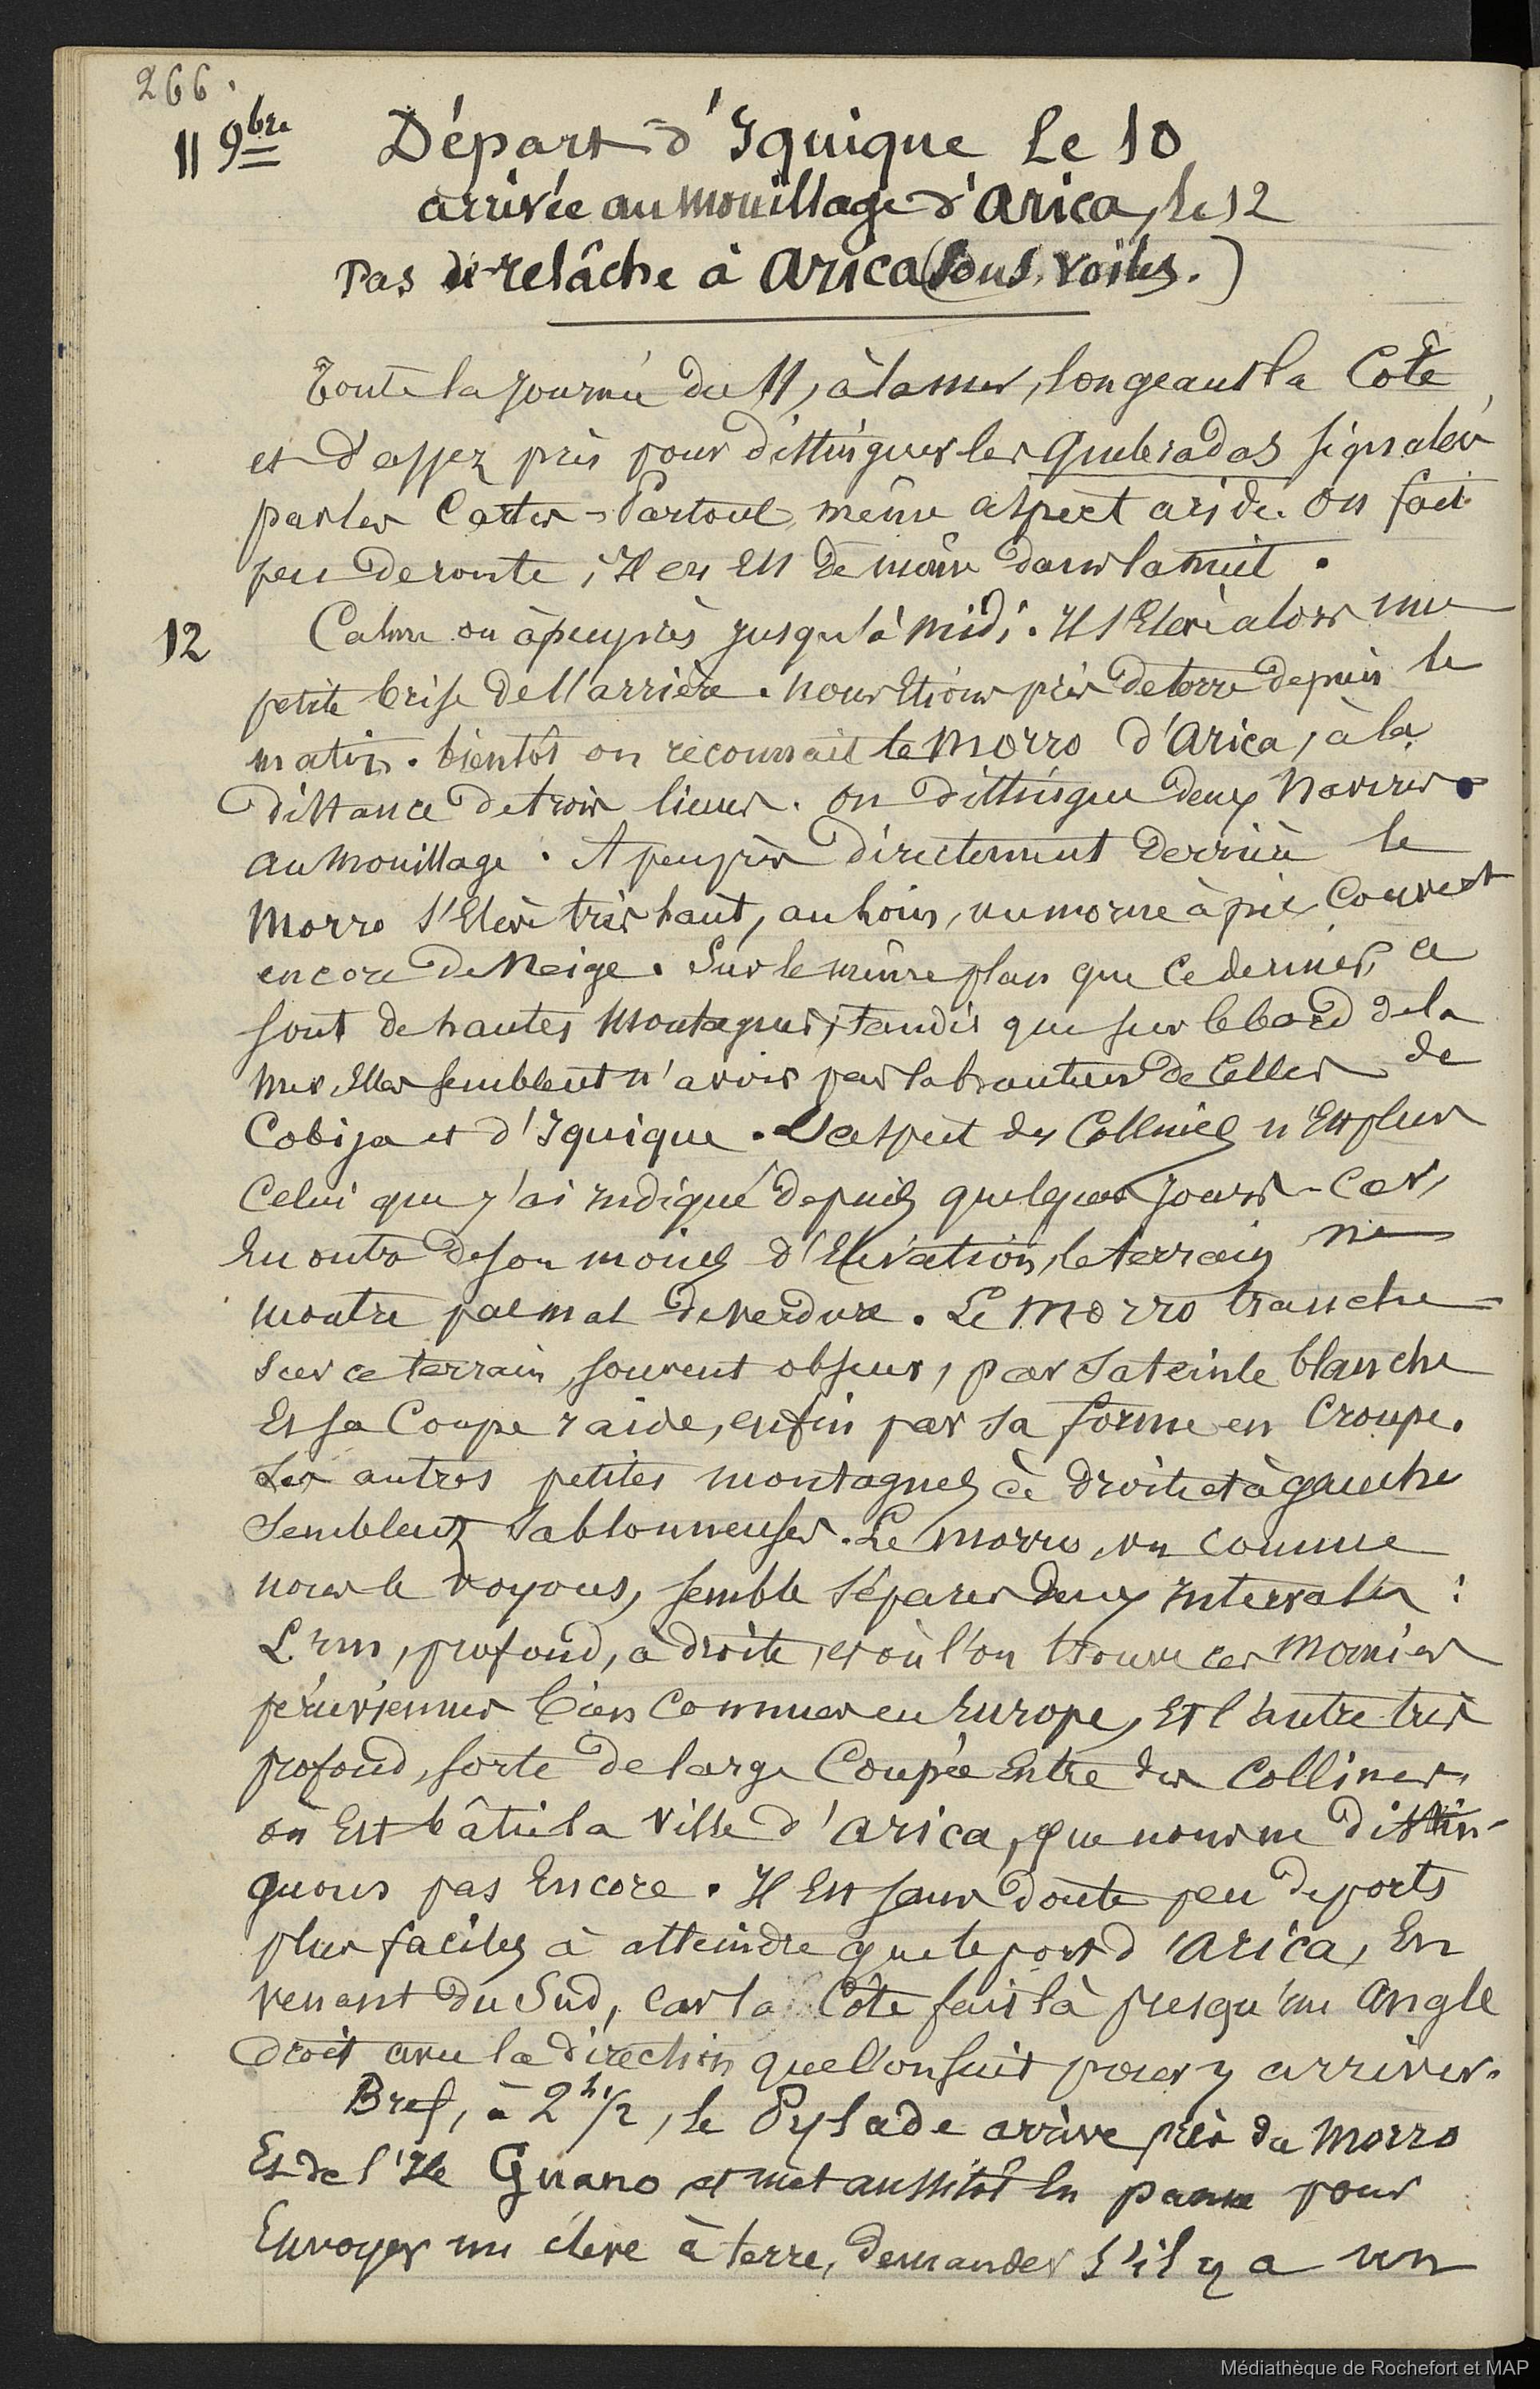 266.
11 9bre Départ d'Iquique le 10
arrivée au mouillage d'Arica, le 12
Pas de relâche à Arica (sous voiles.)
Toute la journée du 11, à la mer, longeant la Côte,
et d'assez près pour distinguer les quebradas signalées
par les Cartes - Partout, même aspect aride. On fait
peu de route ; Il en est de même dans la nuit.
12 Calme ou à peu près jusqu'à midi. Il s'élève alors une
petite brise de l'arrière. Nous étions près de terre depuis le
matin. bientôt on reconnait le Morro d'Arica, à la
distance de trois lieues. On distingue deux Navires
au mouillage. A peu près directement derrière le
Morro s'élève très haut, au loin, un morne à pic, couvert
encore de Neige. Sur le même plan que ce dernier, ce
sont de hautes montagnes, tandis que sur le bord de la
mer, Elles semblent n'avoir pas la hauteur de Celles de
Cobija et d'Iquique. L'aspect des Collines n'Est plus
Celui que j'ai indiqué depuis quelques jours - Car,
En outre de son moins d'Elévation, le terrain ne
montre pas mal de verdure. Le Morro tranche
sur ce terrain, souvent obscur, par sa teinte blanche
Et sa Coupe raide, enfin par sa forme en Croupe.
Les autres petites montagnes à droite et à gauche
semblent sablonneuses. Le Morro, vu comme
nous le voyons, semble séparer deux intervalles :
L'un, profond, à droite, et où l'on trouve ces Momies
péruviennes bien Connues en Europe, Et l'autre très
profond, sorte de large Coupée Entre des Collines,
où Est bâtie la Ville d'Arica, que nous ne distin-
guons pas Encore. Il Est sans doute peu de ports
plus faciles à atteindre que le port d'Arica, En
venant du Sud, car la Côte fait là presqu'un Angle
droit avec la direction que l'on suit pour y arriver.
Bref, à 2h 1/2, le Pylade arrive près du Morro
Et de l'Ile Guano et met aussitôt En panne pour
Envoyer un élève à terre, demander s'il y a un
Médiathèque de Rochefort et MAP